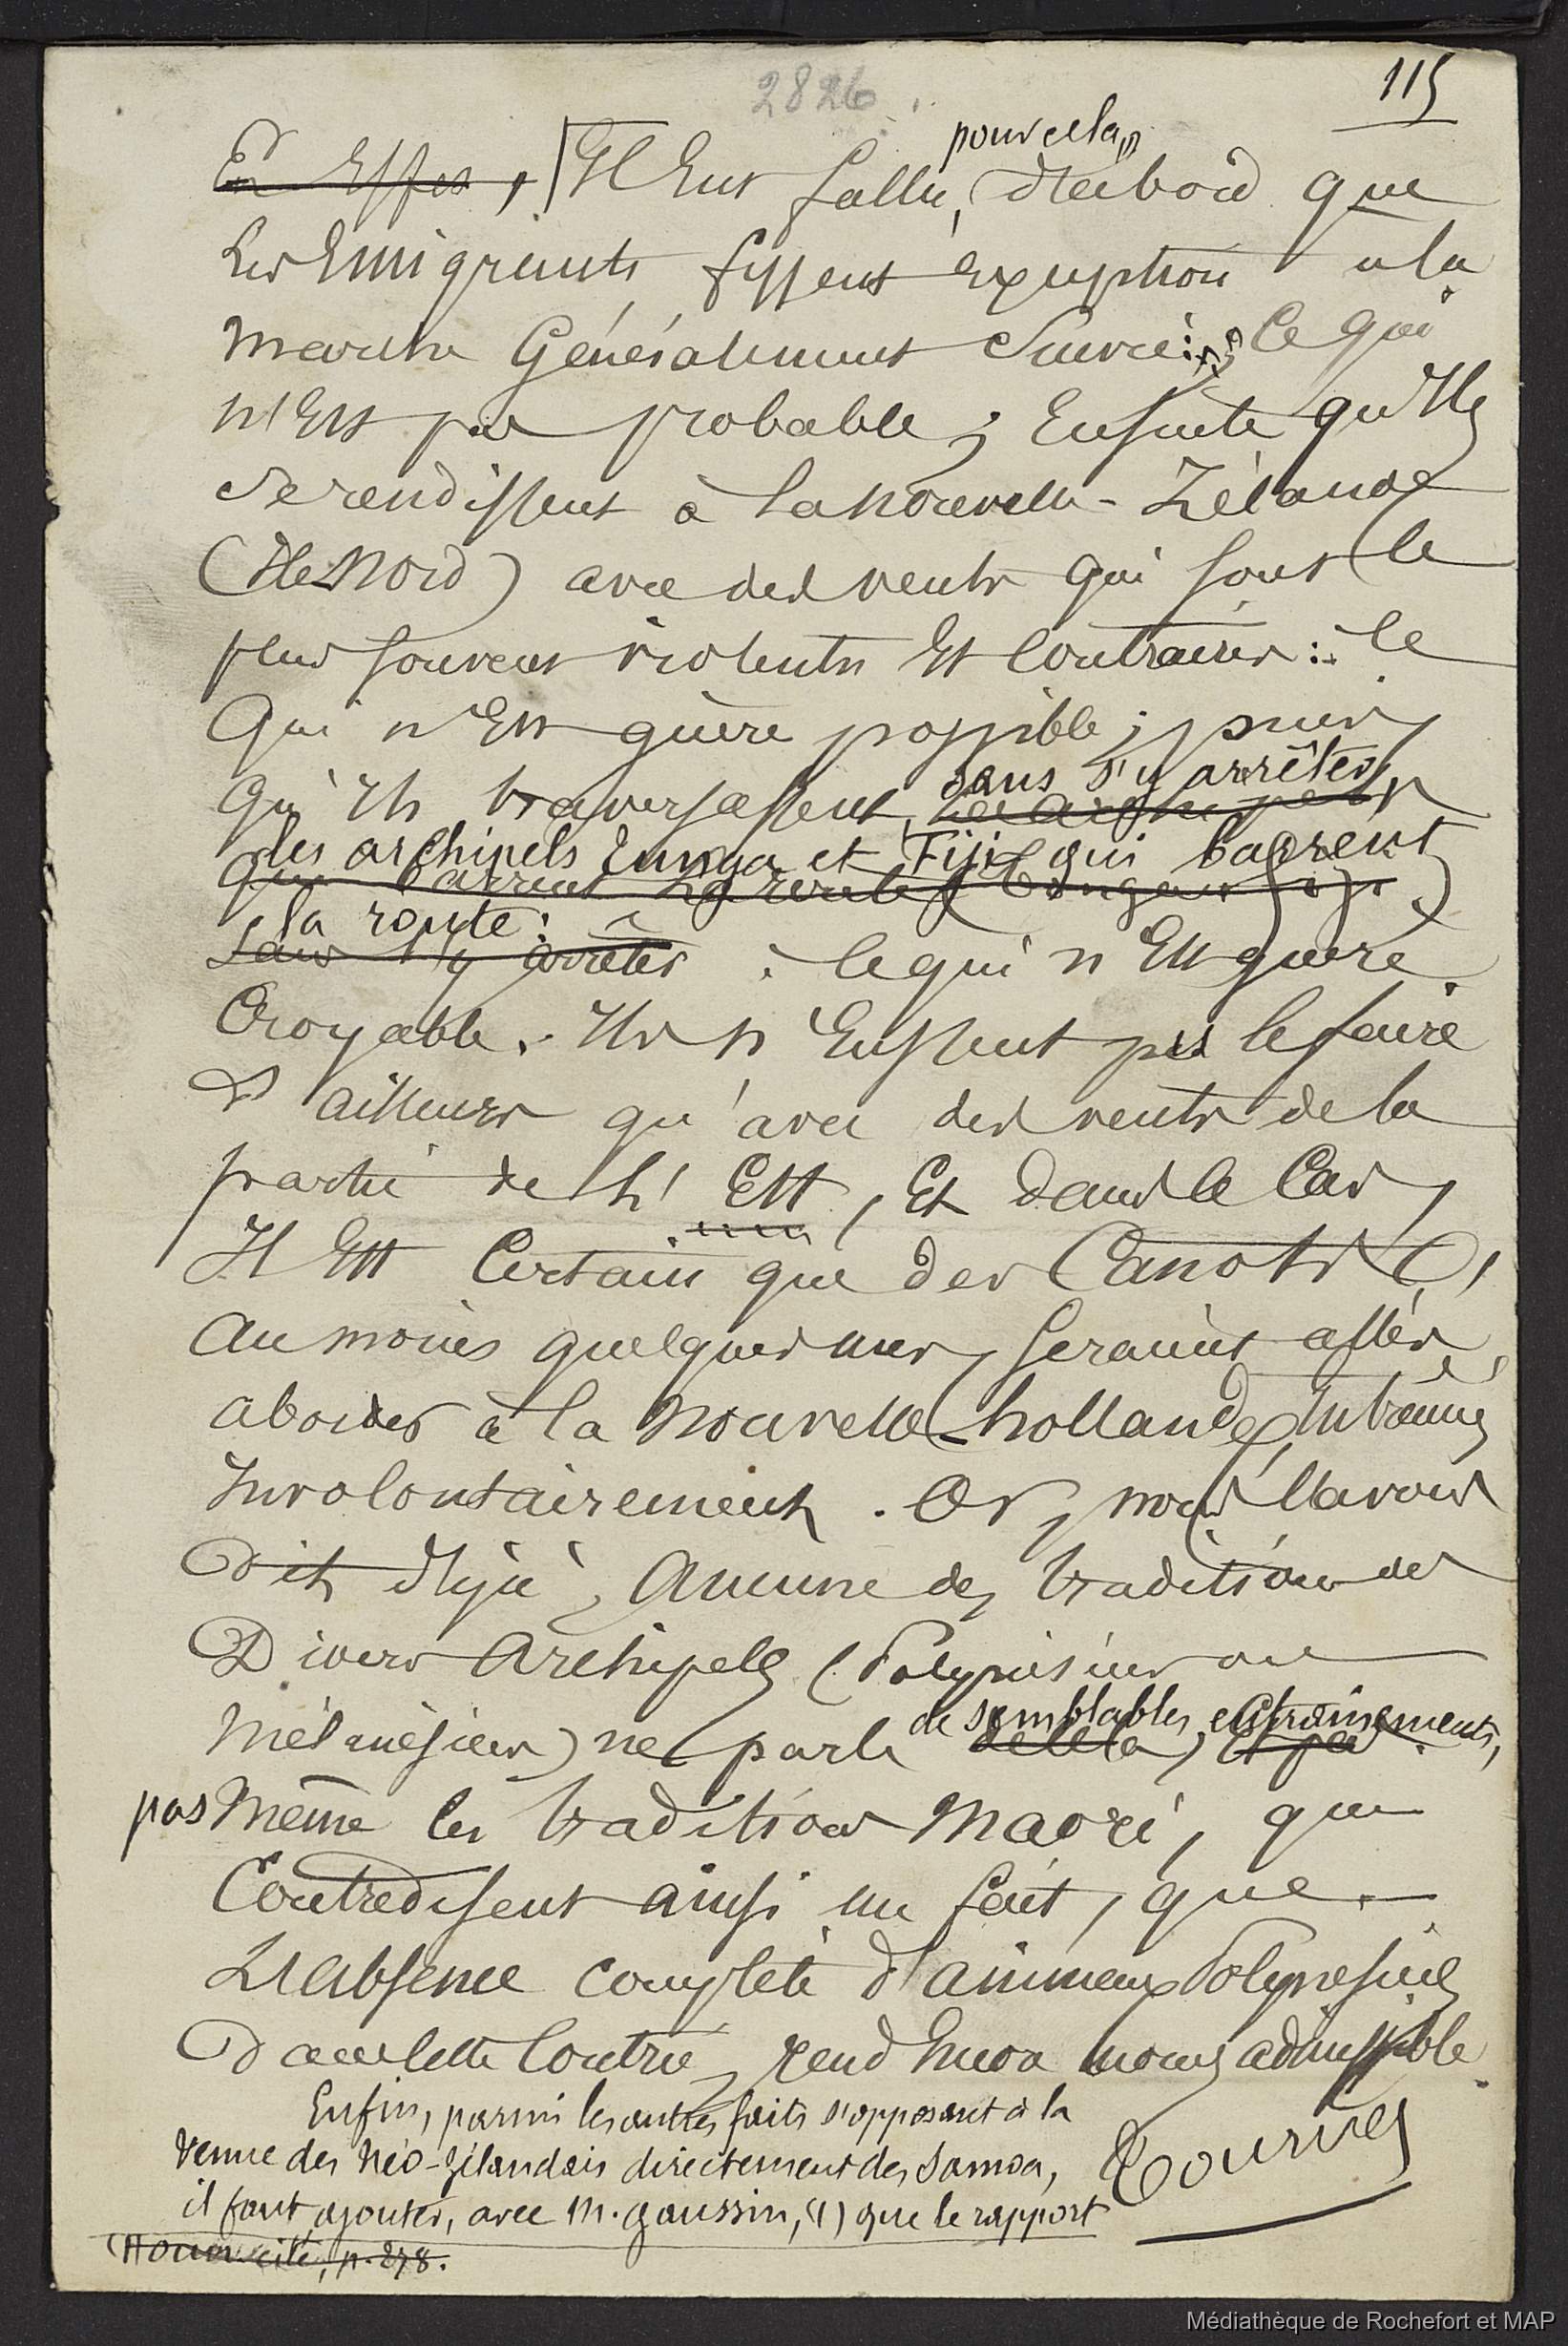 2826
115
pour cela,
En Effet, Il Eut fallu, d'abord que
les Emigrants fissent Exception à la
marche Généralement Suivie: Ce qui
n'Est pas probable; Ensuite qu'Ils
se rendissent à la Nouvelle-Zélande
(Ile Nord) avec des vents qui sont le
plus souvent violents Et Contraires: Ce
Qui n'Est guère possible; puis,
sans s'y arrêter,
qu'Ils traversassent, les archipels
les archipels Tunga et Fiji qui barrent
Qui barrent la route (Tunga Fiji)
la route:
sans s'y arrêter : Ce qui n'Est guère
Croyable. Ils n'Eussent pu le faire
D'ailleurs qu'avec des vents de la
partie de l'Est, Et dans le Cas,
Il Est Certain que des Canots,
Au moins quelques uns, seraient allés
aborder à la Nouvelle-hollande, Entrainés
Involontairement. Or, nous l'avons
Dit déjà, Aucune des traditions des
Divers Archipels (Polynésiens ou
de semblables entrainements,
Mélanésiens) ne parle de cela, Et pas
pas Même les traditions Maori, qui
Contredisent ainsi un fait, que
L'absence complète d'animaux Polynésiens
Dans cette Contrée, rend Encore moins admissible.
Enfin, parmi les autres faits s'opposant à la
venue des Néo-Zélandais directement des Samoa,
il faut ajouter, avec M. gaussin, (1) que le rapport
Tournez
cité, p. 278.
Médiathèque de Rochefort et MAP